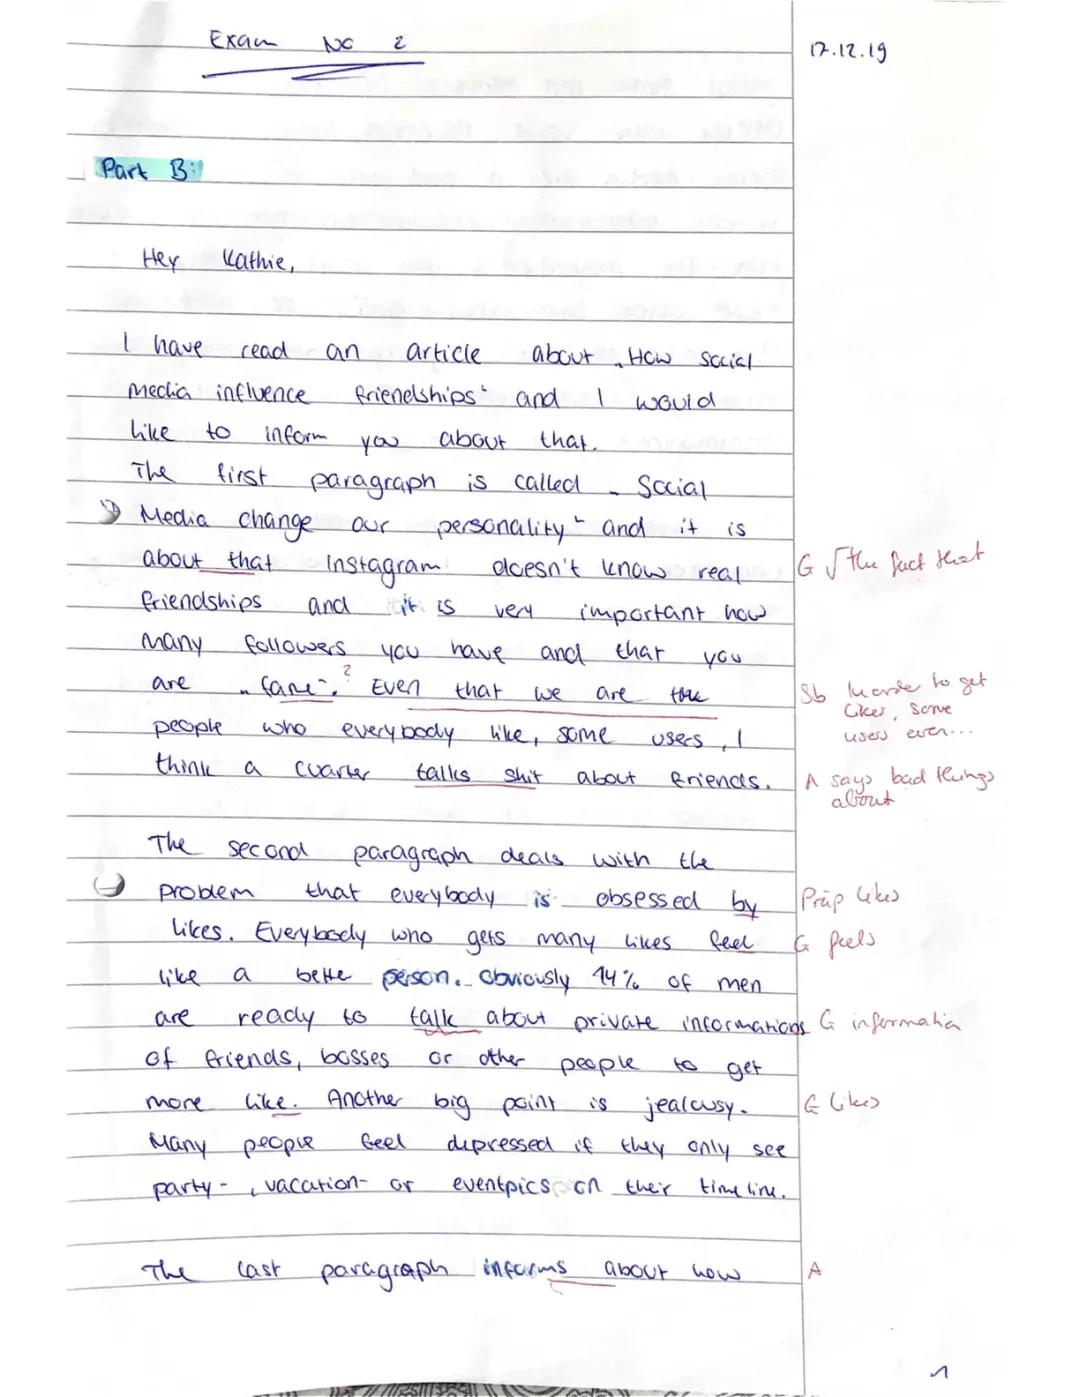 Exam No 2
17.12.19
Part B:
Hey Kathie,
I have read an article about „How Social
Media influence friendships" and I would
like to inform you about that.
The first paragraph is called „Social
Media change our personality" and it is
about that Instagram doesn't know real
G √ the fact that
friendships and it is very important how
many followers you have and that you
are „fame". ? Even that we are the
Sb In order to get
likes, some
users even...
people who everybody like, some users, I
think a cuarter talks shit about friends.
A says bad things
about
The second paragraph deals with the
problem that everybody is obsessed by
Präp likes
likes. Everybody who gets many likes feel
G feels
like a bette person. Obviously 14% of men
are ready to talk about private informations
G information
of friends, bosses or other people to get
more like. Another big point is jealousy.
G likes
Many people feel depressed if they only see
party-, vacation- or eventpics on their timeline.
The last paragraph informs about how
A
1